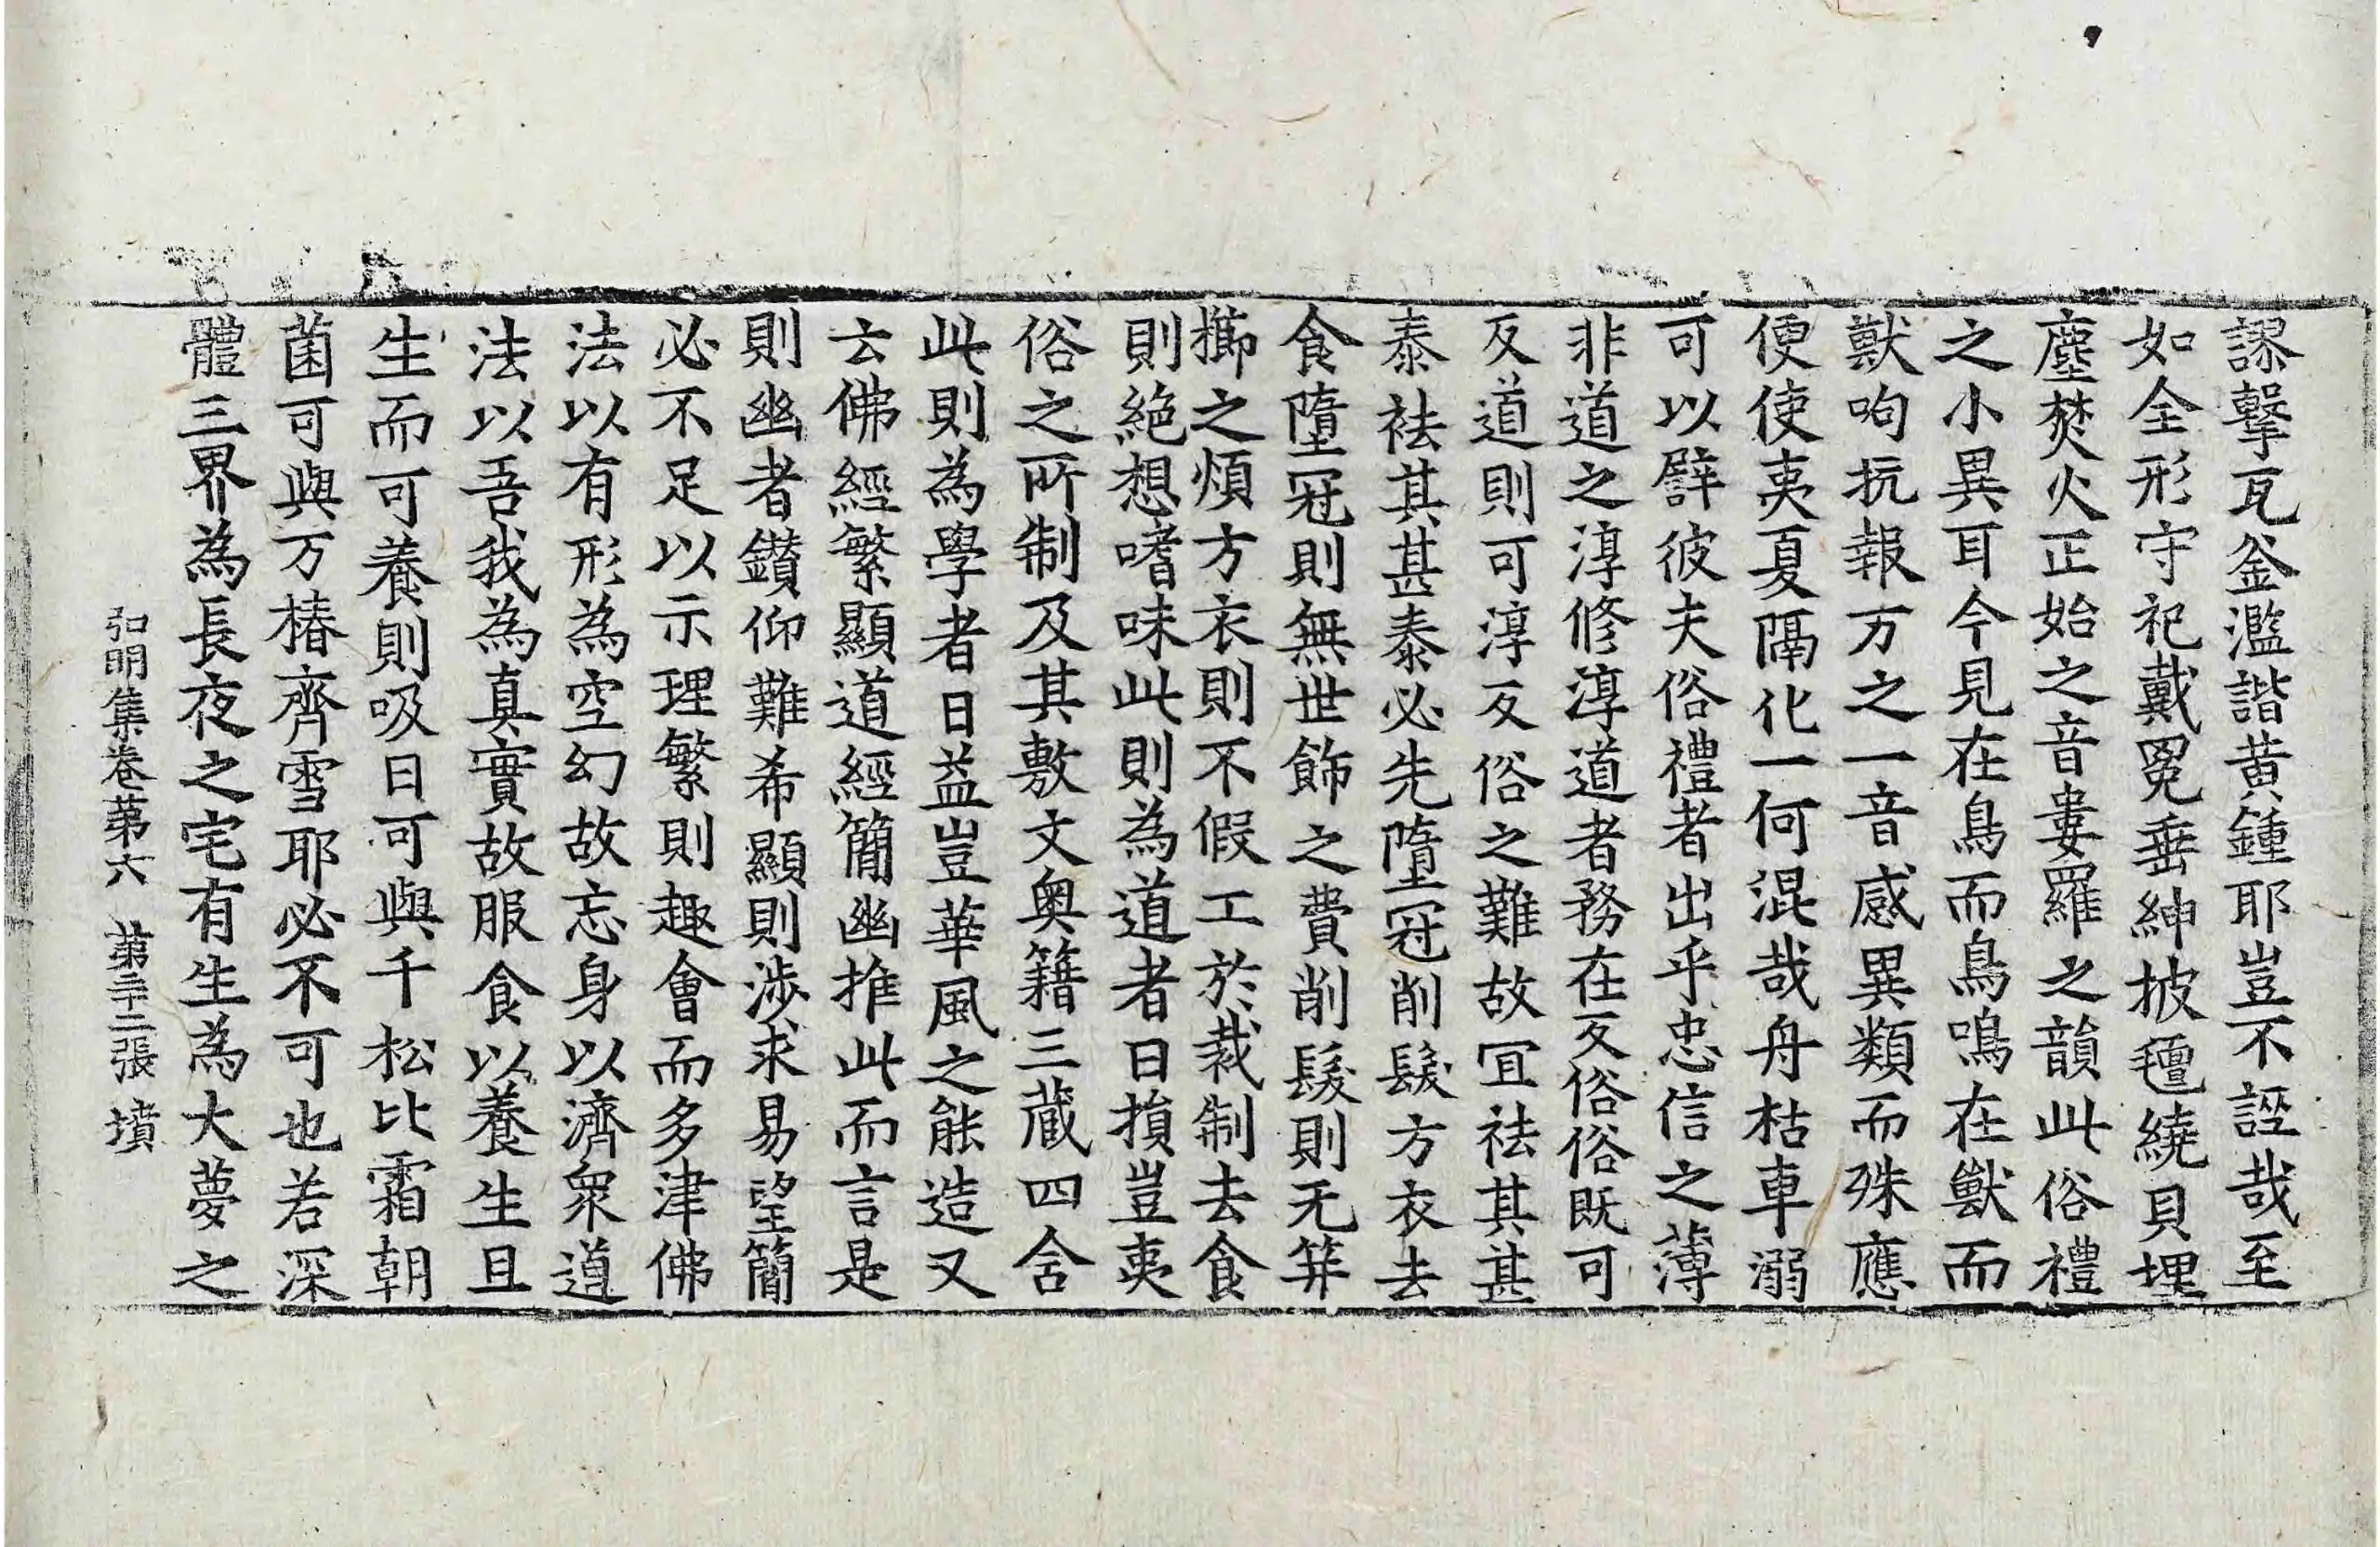 謬擊瓦釜濫諧黃鍾耶豈不誣哉至
如全形守祀戴冕垂紳披氊繞貝埋
塵焚火正始之音婁羅之韻此俗禮
之小異耳今見在鳥而鳥鳴在獸而
獸呴抗報万之一音感異類而殊應
便使夷夏隔化一何混哉舟枯車溺
可以譬彼夫俗禮者出乎忠信之薄
非道之淳修淳道者務在反俗俗既可
反道則可淳反俗之難故宜袪其甚
泰袪其甚泰必先墮冠削髮方衣去
食墮冠則無世飾之費削髮則无笄
擳之煩方衣則不假工於裁制去食
則絕想嗜味此則為道者日損豈夷
俗之所制及其敷文奧籍三藏四含
此則為學者日益豈華風之能造又
云佛經繁顯道經簡幽推此而言是
則幽者鑚仰難希顯則涉求易望簡
必不足以示理繁則趣會而多津佛
法以有形為空幻故忘身以濟衆道
法以吾我為真實故服食以養生且
生而可養則吸日可與千松比霜朝
菌可與万椿齊雪耶必不可也若深
體三界為長夜之宅有生為大夢之
弘明集卷第六　第二十二張　墳